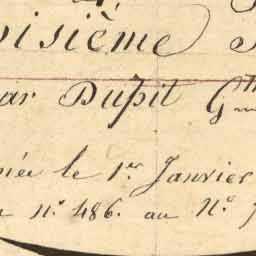 oisième
ar Dupit G
née le 1er Janvier
n° 486. au N°